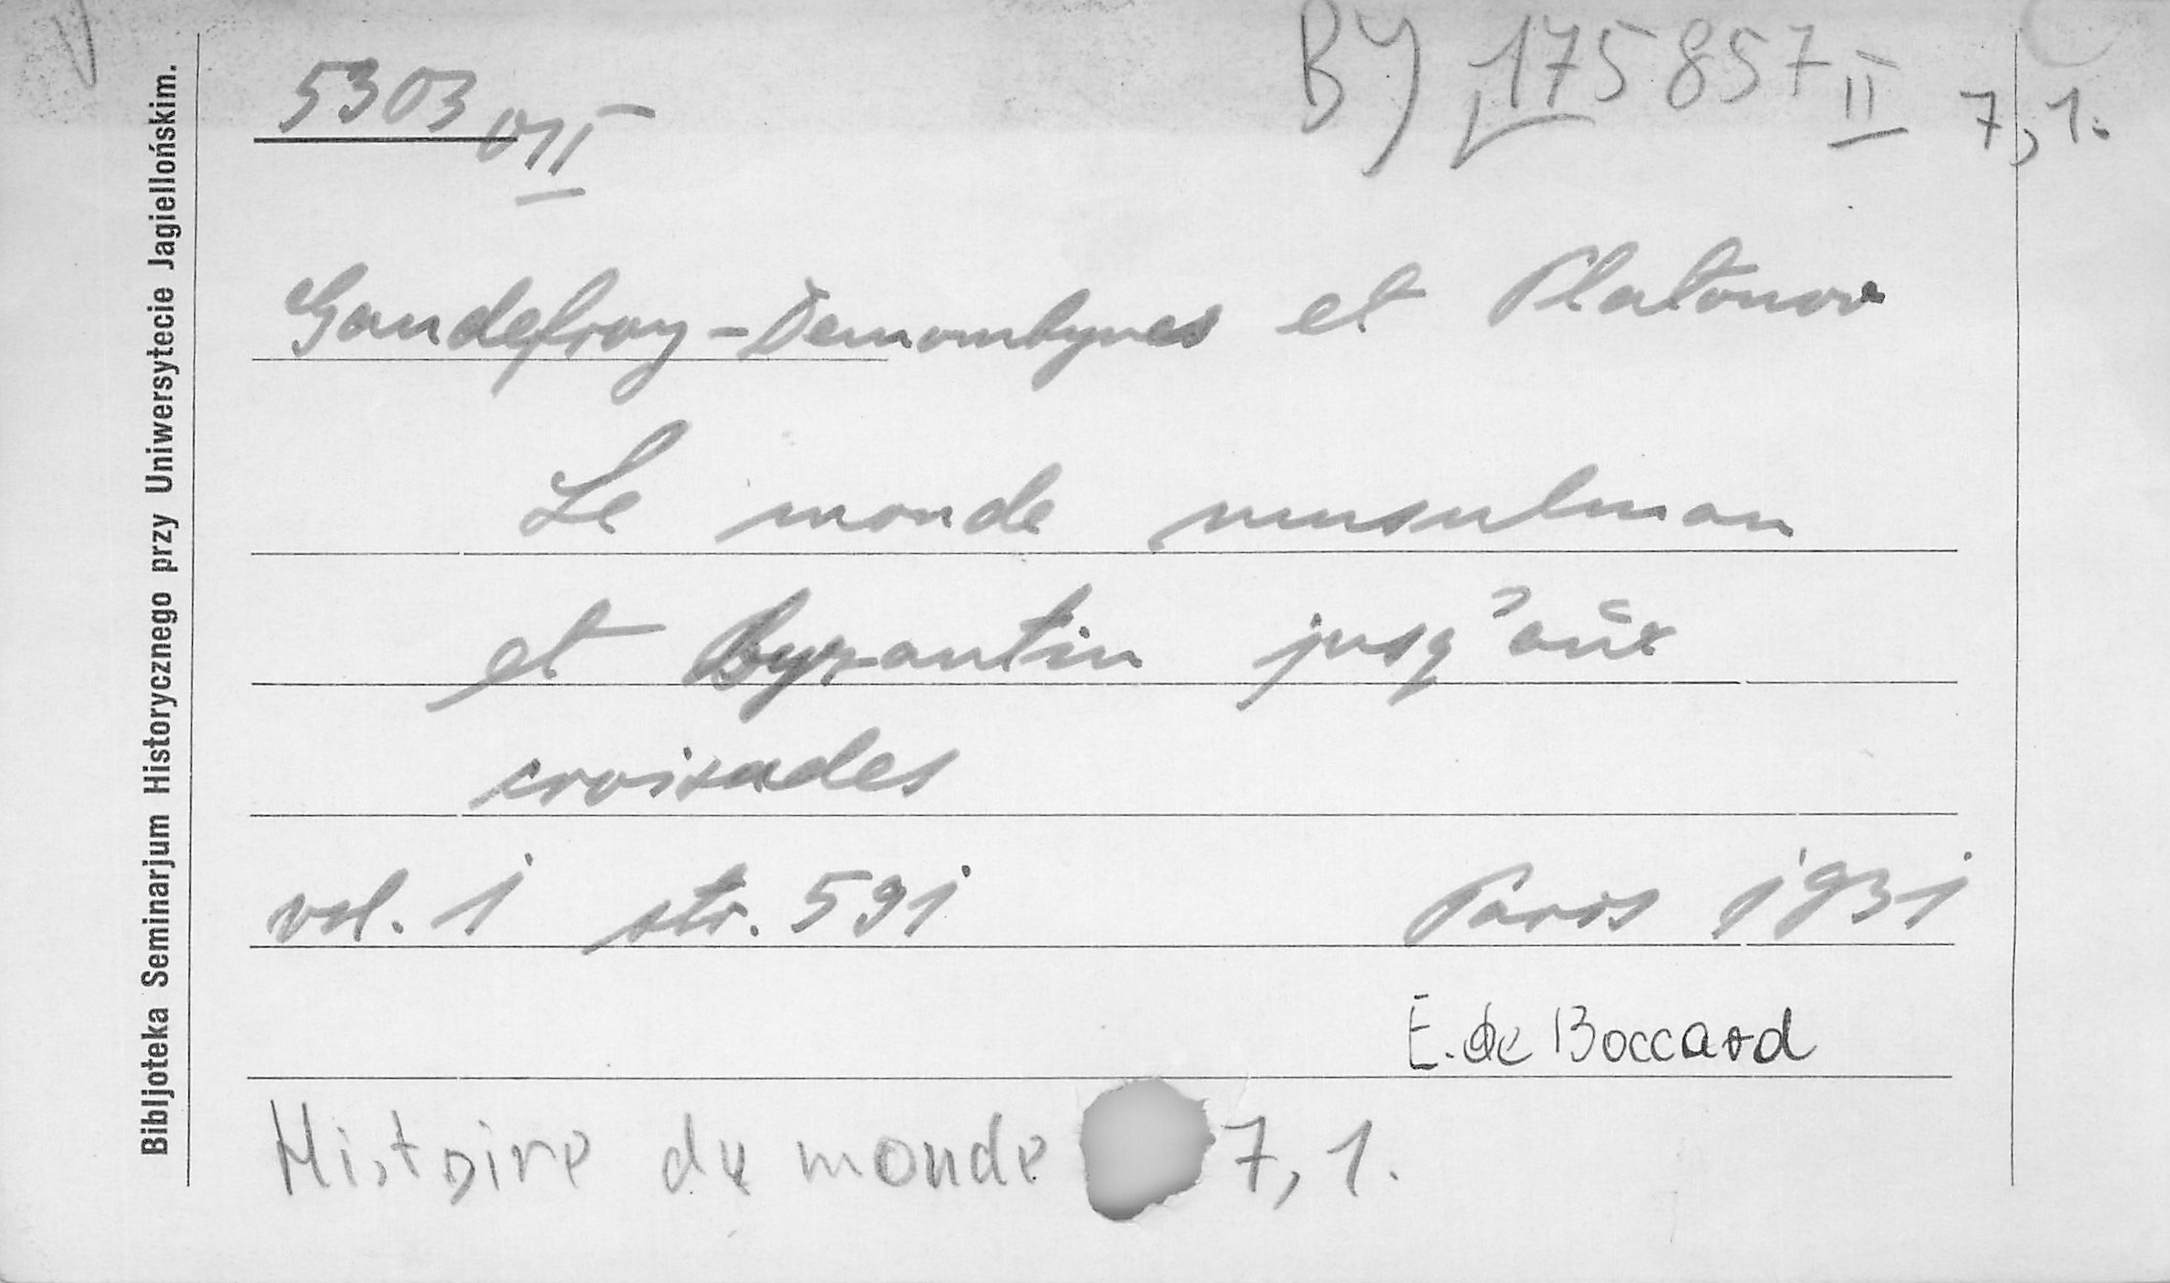 5303 VII
BJ 175857 II 7,1.
Gaudefroy-Demombynes et Platonov
Le monde musulman
et Byzantin jusq'aux
croisades
vol. 1 str. 591 Paris 1931
E. de Boccard
Histoire du monde 7, 1.
Bibljoteka Seminarjum Historycznego przy Uniwersytecie Jagiellońskim.